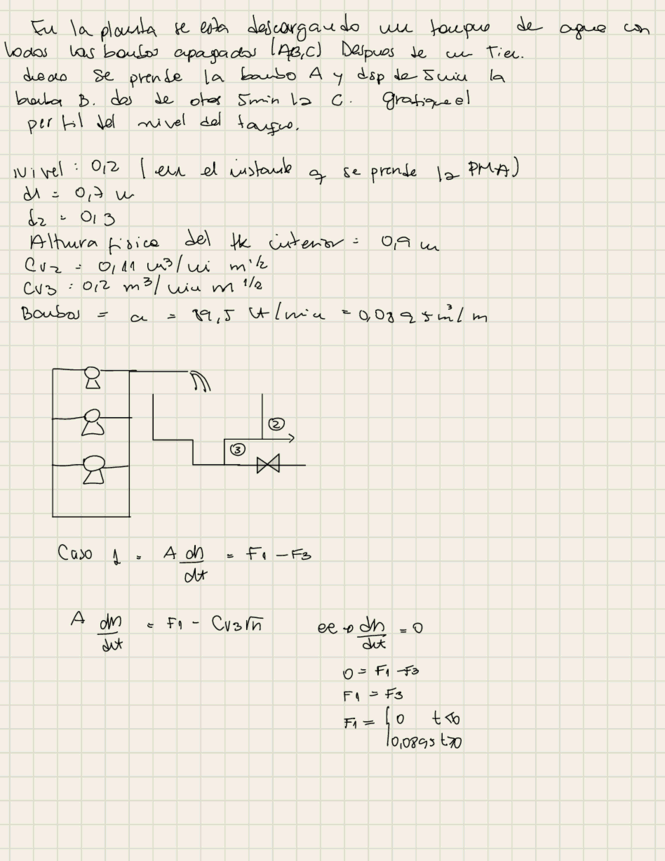 En la planta se esta descargando un tanque de agua con
todos las bombas apagadas (A,B,C) Despues de un Tiem.
dado se prende la bomba A y dsp de 5 min la
bomba B. des de otros 5min la C. grafique el
perfil del nivel del tanque.
Nivel : 0,2 (en el instante q se prende la PMA)
d1 = 0,7 m
d2 = 0,3
Altura fisica del tk interior = 0,9 m
Cv2 = 0,11 m³/mi m^1/2
Cv3 : 0,2 m³/min m^1/2
Bombas = a = 89,5 lt/min = 0,0895 m³/m
②
③
Caso 1 = A dh/dt = F1 - F3
A dh/dt = F1 - Cv3√h
ee → dh/dt = 0
0 = F1 - F3
F1 = F3
F1 = { 0 t<0
0,0895 t>0